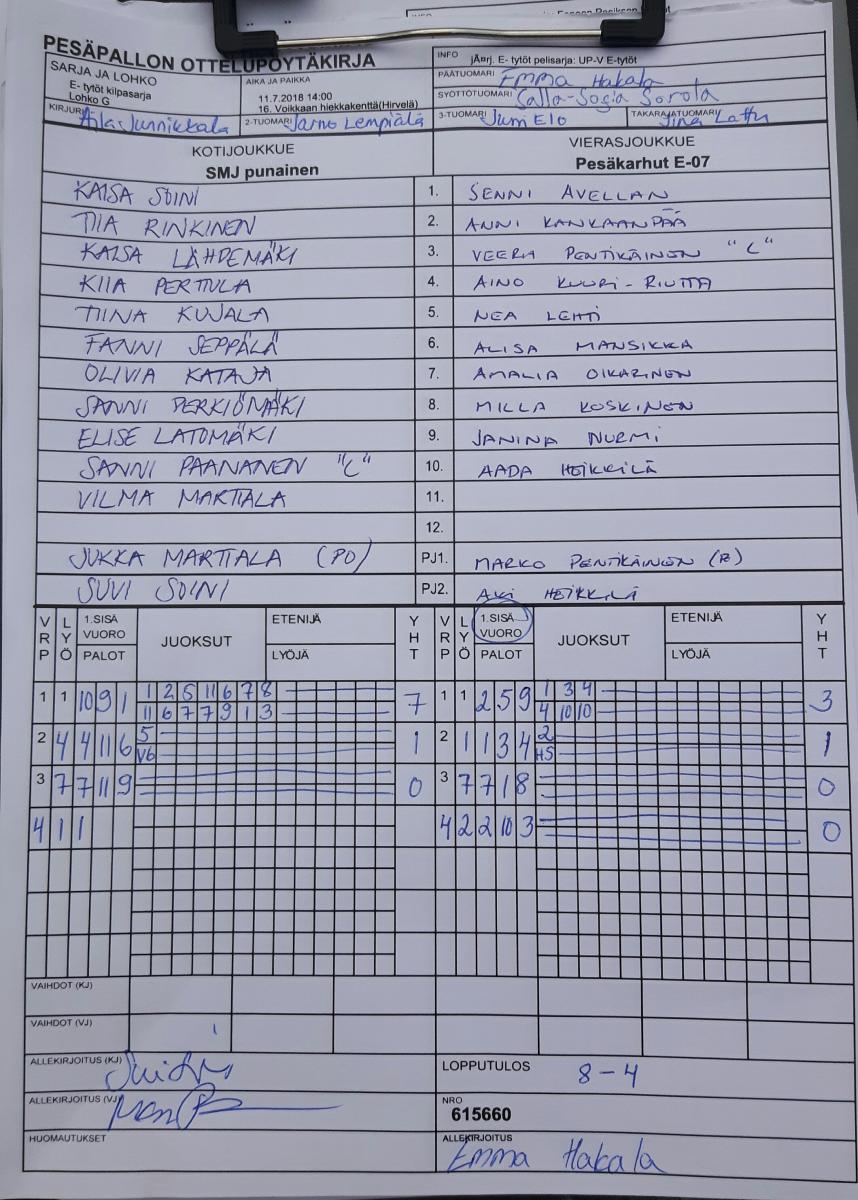 PESÄPALLON OTTELUPÖYTÄKIRJA
SARJA JA LOHKO
E- tytöt kilpasarja
Lohko G
AIKA JA PAIKKA
11.7.2018 14:00
16. Voikkaan hiekkakenttä(Hirvelä)
INFO
jÄrrj. E- tytöt pelisarja: UP-V E-tytöt
PÄÄTUOMARI Emma Hakala
SYÖTTÖTUOMARI Salla-Sofia Sorola
KIRJURI Junnikkala
2-TUOMARI Jarno Lempiälä
3-TUOMARI Jum Elo
TAKARAJATUOMARI Lattu
KOTIJOUKKUE
SMJ punainen
VIERASJOUKKUE
Pesäkarhut E-07
KAISA SOINI 1. SENNI AVELLAN
TIIA RINKINEN 2. ANNI KANKAANPÄÄ
KAISA LÄHDEMÄKI 3. VEERA PENTIKÄINEN "C"
KIIA PERTTULA 4. AINO KUURI-RIUTTA
TIINA KUJALA 5. NEA LEHTI
FANNI SEPPÄLÄ 6. ALISA MANSIKKA
OLIVIA KATAJA 7. AMALIA OIKARINEN
SANNI PERKIÖMÄKI 8. MILLA KOSKINEN
ELISE LATOMÄKI 9. JANINA NURMI
SANNI PAANANEN "C" 10. AADA HEIKKILÄ
VILMA MARTTALA 11.
12.
JUKKA MARTTALA (PO) PJ1. MARKO PENTIKÄINEN
SUVI SOINI PJ2. AKI HEIKKILÄ
VRP LYÖ 1.SISÄ VUORO PALOT JUOKSUT ETENIJÄ LYÖJÄ YHT VRP LYÖ 1.SISÄ VUORO PALOT JUOKSUT ETENIJÄ LYÖJÄ YHT
1 1 10 9 1 1 2 5 11 6 7 8 7 1 1 2 5 9 1 3 4 3
11 6 7 7 9 1 3 4 10 10
2 4 4 11 6 5 1 2 1 1 3 4 2 1
V6 H5
3 7 7 11 9 0 3 7 7 1 8 0
4 1 1 4 2 2 10 3 0
VAIHDOT (KJ)
VAIHDOT (VJ)
ALLEKIRJOITUS (KJ)
LOPPUTULOS 8-4
ALLEKIRJOITUS (VJ)
NRO
615660
HUOMAUTUKSET
ALLEKIRJOITUS
Emma Hakala